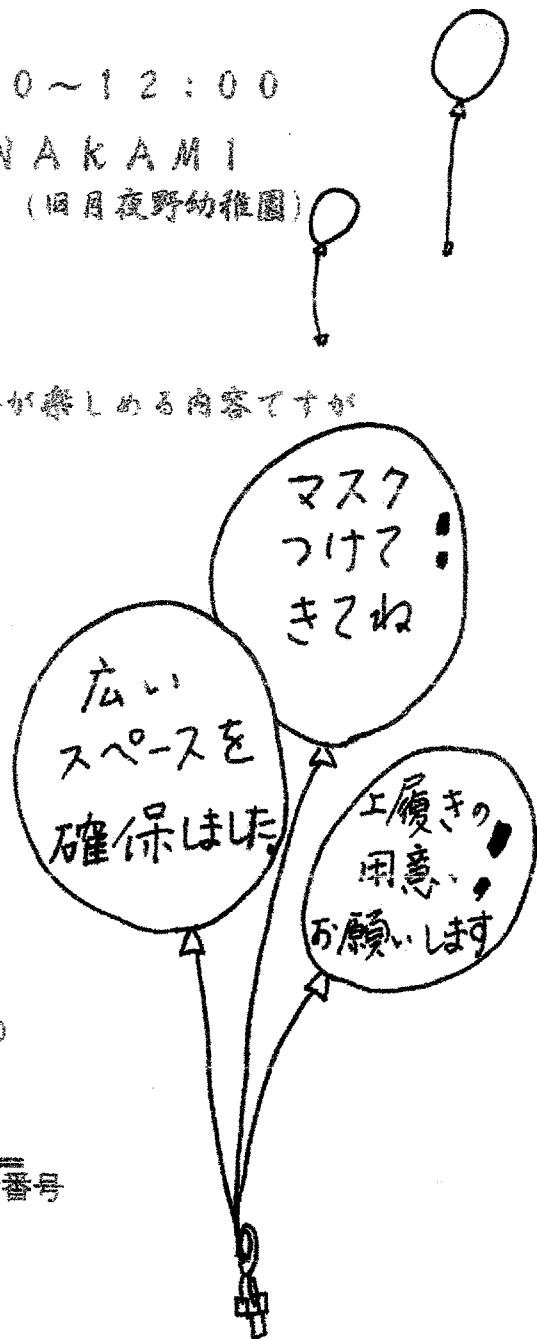 0～12:00
NAKAMI
(旧月夜野幼稚園)
が楽しめる内容ですが
マスク
つけて
きてね!
広い
スペースを
確保しました。
上履きの
用意、
お願いします!
番号